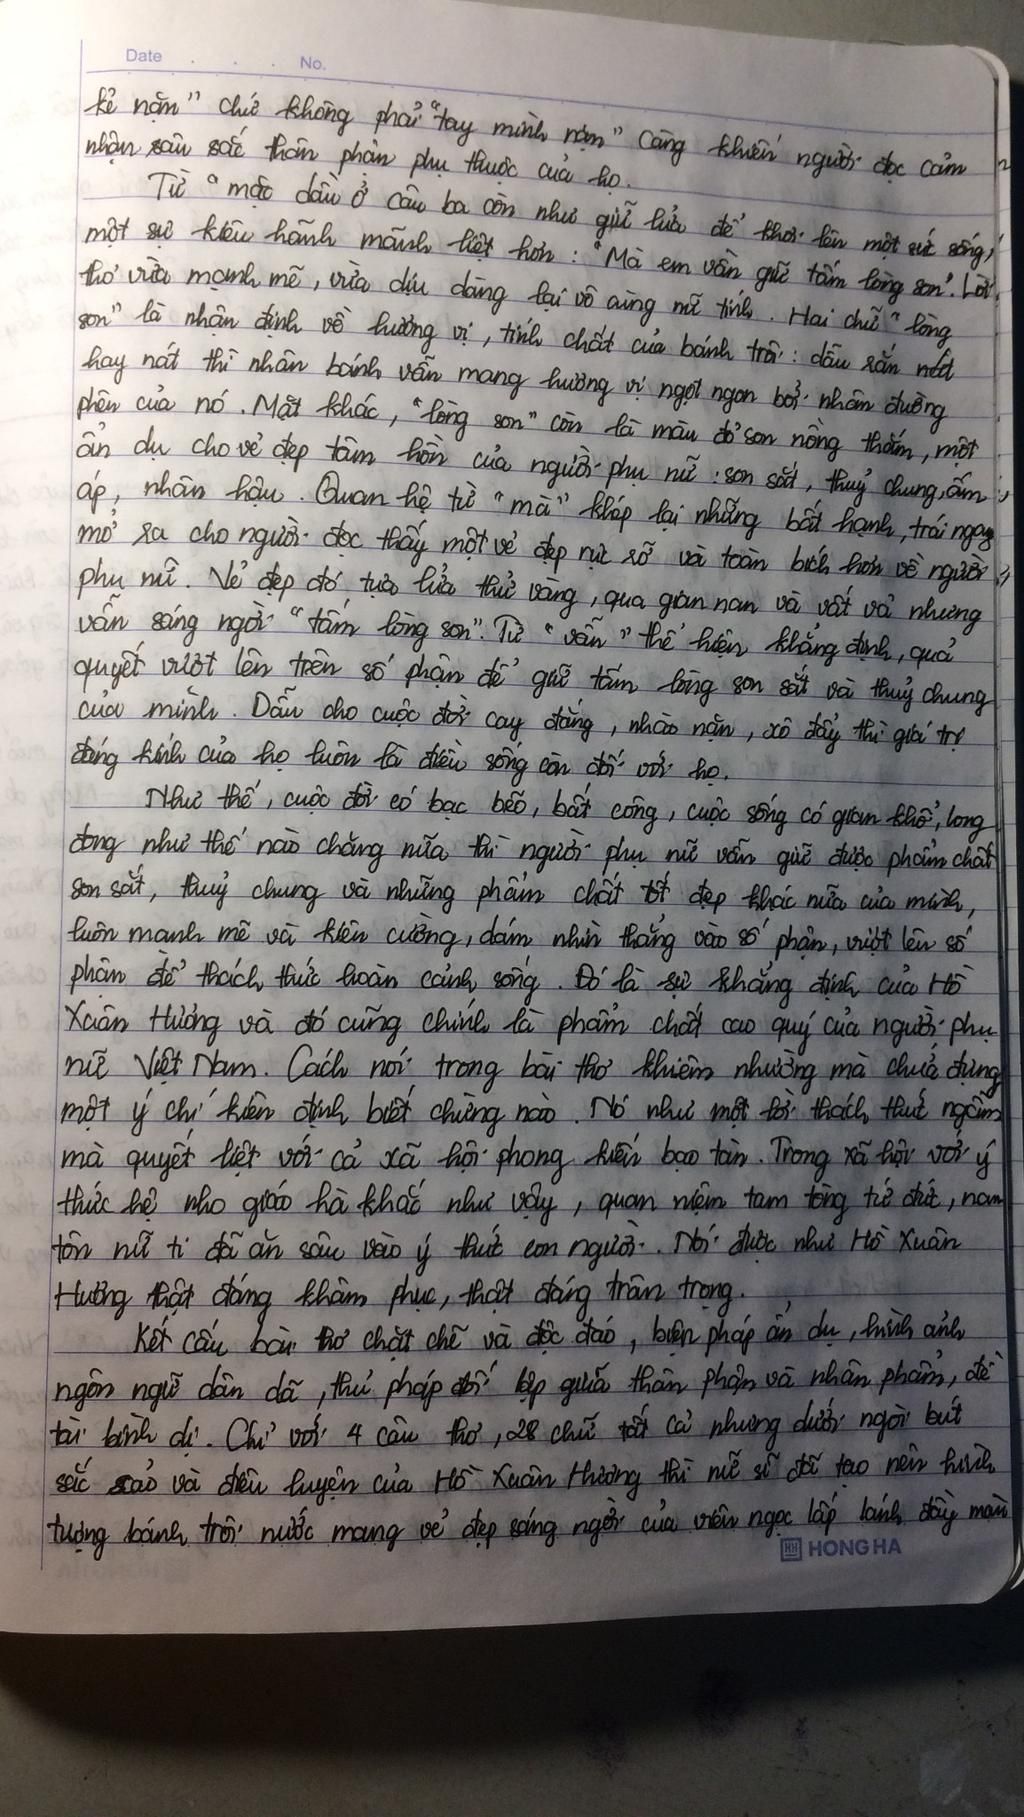 Date . . . No.
kẻ nặn" chứ không phải "tay mình nặn" càng khiến người đọc cảm
nhận sâu sắc thân phận phụ thuộc của họ.
Từ "mặc dầu ở câu ba còn như giữ lửa để khơi lên một sức sống,
một sự kiêu hãnh mãnh liệt hơn : "Mà em vẫn giữ tấm lòng son". Lời
thơ vừa mạnh mẽ, vừa dịu dàng lại vô cùng nữ tính. Hai chữ "lòng
son" là nhận định về hương vị, tính chất của bánh trôi: dầu rắn nát
hay nát thì nhân bánh vẫn mang hương vị ngọt ngon bởi nhân đường
phên của nó. Mặt khác, "lòng son" còn là màu đỏ son nồng thắm, một
ẩn dụ cho vẻ đẹp tâm hồn của người phụ nữ : son sắt, thuỷ chung, ấm
áp, nhân hậu. Quan hệ từ "mà" khép lại những bất hạnh, trái ngang
mở ra cho người đọc thấy một vẻ đẹp rực rỡ và toàn bích hơn về người
phụ nữ. Vẻ đẹp đó tựa lửa thử vàng, qua gian nan và vất vả nhưng
vẫn sáng ngời "tấm lòng son". Từ "vẫn" thể hiện khẳng định, quả
quyết vượt lên trên số phận để giữ tấm lòng son sắt và thuỷ chung
của mình. Dẫu cho cuộc đời cay đắng, nhào nặn, xô đẩy thì giá trị
đáng kính của họ luôn là điều sống còn đối với họ.
Như thế, cuộc đời có bạc bẽo, bất công, cuộc sống có gian khổ, long
đong như thế nào chăng nữa thì người phụ nữ vẫn giữ được phẩm chất
son sắt, thuỷ chung và những phẩm chất tốt đẹp khác nữa của mình,
luôn mạnh mẽ và kiên cường, dám nhìn thẳng vào số phận, vượt lên số
phận để thách thức hoàn cảnh sống. Đó là sự khẳng định của Hồ
Xuân Hương và đó cũng chính là phẩm chất cao quý của người phụ
nữ Việt Nam. Cách nói trong bài thơ khiêm nhường mà chứa đựng
một ý chí kiên định biết chừng nào. Nó như một lời thách thức ngầm
mà quyết liệt với cả xã hội phong kiến bạo tàn. Trong xã hội với ý
thức hệ nho giáo hà khắc như vậy, quan niệm tam tòng tứ đức, nam
tôn nữ ti đã ăn sâu vào ý thức con người. Nói được như Hồ Xuân
Hương thật đáng khâm phục, thật đáng trân trọng.
Kết cấu bài thơ chặt chẽ và độc đáo, biện pháp ẩn dụ, hình ảnh
ngôn ngữ dân dã, thủ pháp đối lập giữa thân phận và nhân phẩm, đề
tài bình dị. Chỉ với 4 câu thơ, 28 chữ tất cả nhưng dưới ngòi bút
sắc sảo và điêu luyện của Hồ Xuân Hương thì nữ sĩ đã tạo nên hình
tượng bánh trôi nước mang vẻ đẹp sáng ngời của viên ngọc lấp lánh đầy màu
HONG HA